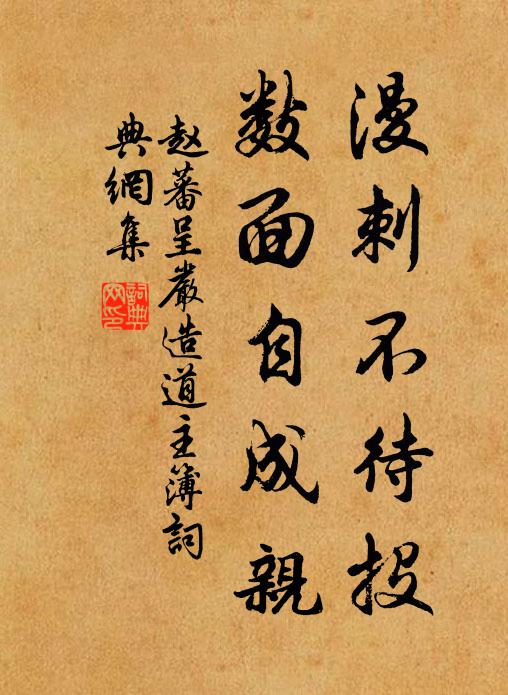 漫刺不待投
数面自成親
赵蕃呈嚴造道主簿詞
典網集
詞典網印